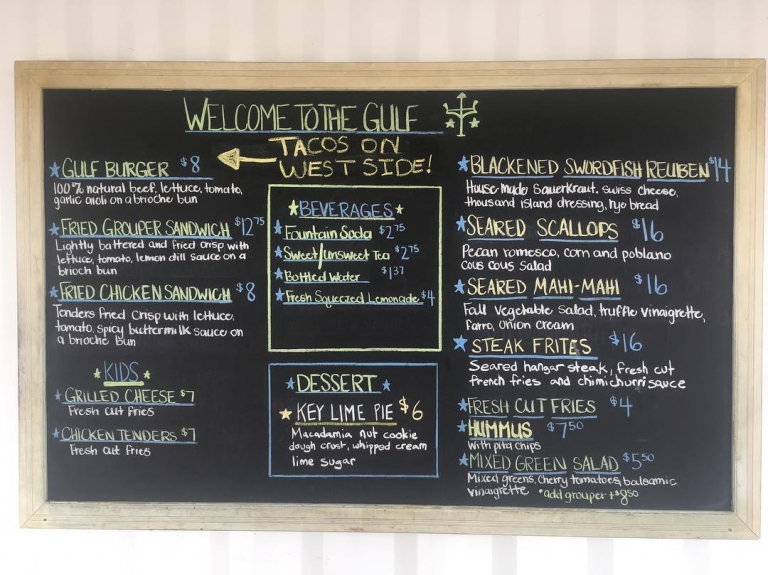 WELCOME TO THE GULF
TACOS ON
WEST SIDE!
GULF BURGER $8
100% natural beef, lettuce, tomato,
garlic aioli on a brioche bun
FRIED GROUPER SANDWICH $12.75
Lightly battered and fried crisp with
lettuce, tomato, lemon dill sauce on a
brioch bun
FRIED CHICKEN SANDWICH $8
Tenders fried crisp with lettuce,
tomato, spicy buttermilk sauce on
a brioche bun
KIDS
GRILLED CHEESE $7
Fresh cut fries
CHICKEN TENDERS $7
Fresh cut fries
BEVERAGES
Fountain Soda $2.75
Sweet/unsweet Tea $2.75
Bottled Water $1.37
Fresh Squeezed Lemonade $4
DESSERT
KEY LIME PIE $6
Macadamia nut cookie
dough crust, whipped cream
lime sugar
BLACKENED SWORDFISH REUBEN $14
House-made sauerkraut, swiss cheese,
thousand island dressing, rye bread
SEARED SCALLOPS $16
Pecan romesco, corn and poblano
cous cous salad
SEARED MAHI-MAHI $16
Fall vegetable salad, truffle vinaigrette,
farro, onion cream
STEAK FRITES $16
Seared hangar steak, fresh cut
french fries and chimichurri sauce
FRESH CUT FRIES $4
HUMMUS $7.50
with pita chips
MIXED GREEN SALAD $5.50
Mixed greens, cherry tomatoes, balsamic
vinaigrette *add grouper +$8.50